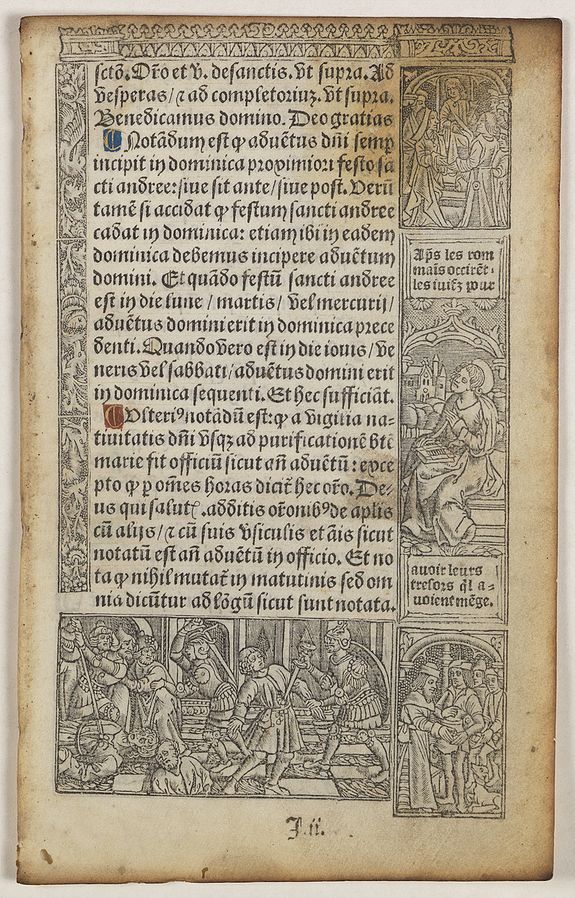 sctõ. Oro̅ et v̅. de sanctis. vt supra. Ad
vesperas / ⁊ ad completoriuꝫ. vt supra.
Benedicamus domino. Deo gratias
Notādum est ꝙ aduētus dn̄i semꝑ
incipit in dominica proximiori festo sā
cti andree: siue sit ante / siue post. Verū
tamē si accidat ꝙ festum sancti andree
cadat in dominica: etiam ibi in eadem
dominica debemus incipere aduētum
domini. Et quādo festū sancti andree
est in die lune / martis / vel mercurij /
aduētus domini erit in dominica prece
dēti. Quando vero est in die iouis / ve
neris vel sabbati / aduētus domini erit
in dominica sequenti. Et hec sufficiāt.
Vlteriꝰ notādū est: ꝙ a vigilia na⸗
tiuitatis dn̄i vsqꝫ ad purificationē btē
marie fit officiū sicut an̄ aduētū: exce
pto ꝙ ꝑ om̄es horas dicit̄ hec oro̅. De⸗
us qui salutꝭ. additis oro̅nibꝰ de aplis
cū alijs / ⁊ cū suis v̅siculis et āis sicut
notatū est an̄ aduētū in officio. Et no
ta ꝙ nihil mutat̄ in matutinis sed om
nia dicūtur ad lōgū sicut sunt notata.
Aps̄ les rom
mais occirēt
les iuifz pour
auoir leurs
tresors ql̄ a⸗
uoient mēge.
J.ii.